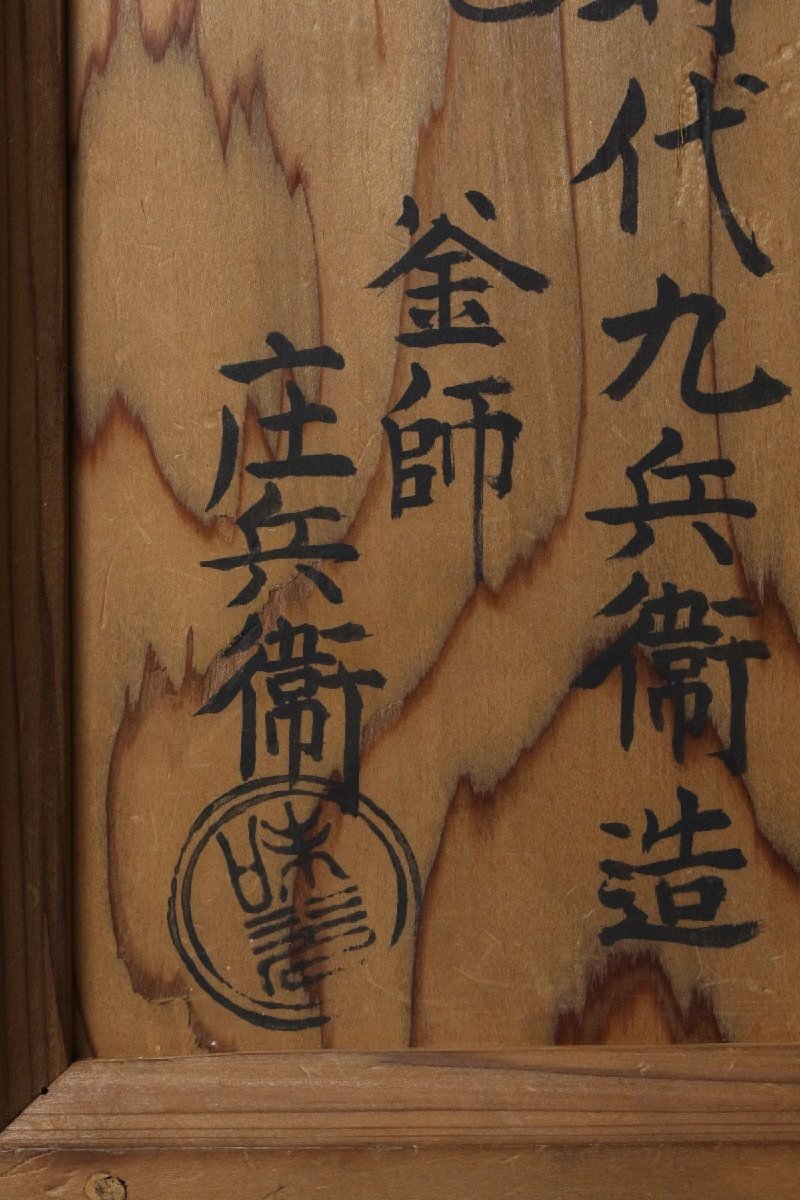 代九兵衛造
釜師
庄兵衛